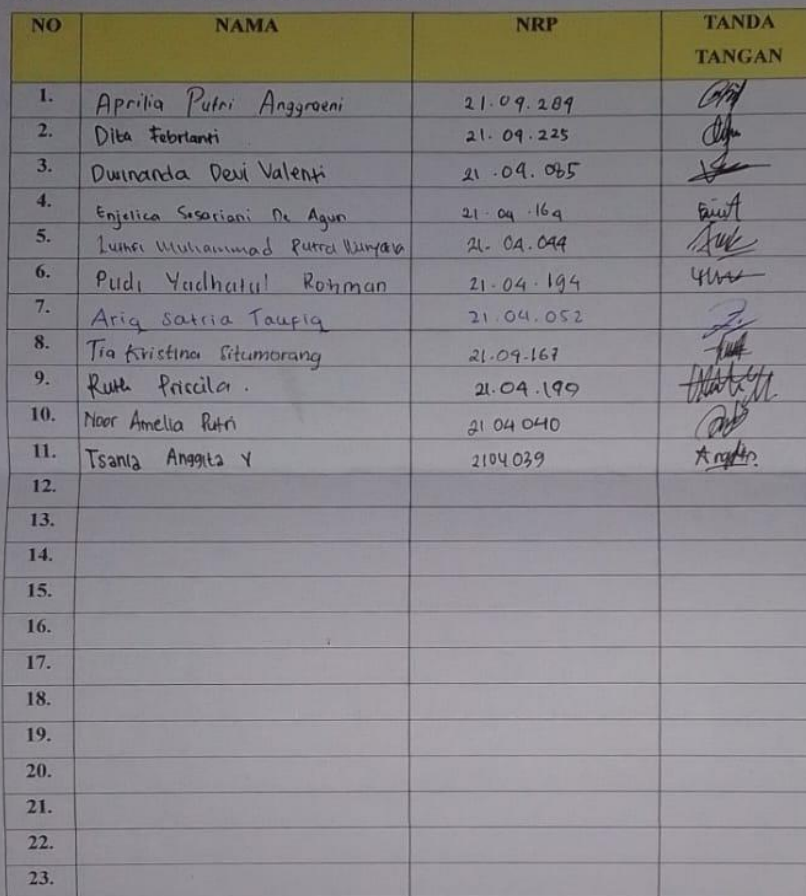 NO NAMA NRP TANDA TANGAN
1. Aprilia Putri Anggraeni 21.04.289
2. Dita Febrianti 21.04.225
3. Dwinanda Devi Valenti 21.04.085
4. Enjelica Sesariani De Agun 21.04.164
5. Muhammad Putra 21.04.044
6. Pudi Yudhatul Rohman 21.04.194
7. Ariq Satria Taufiq 21.04.052
8. Tia Kristina Situmorang 21.04.167
9. Ruth Priscila. 21.04.199
10. Noor Amelia Putri 21 04 040
11. Tsania Anggita Y 2104039
12.
13.
14.
15.
16.
17.
18.
19.
20.
21.
22.
23.